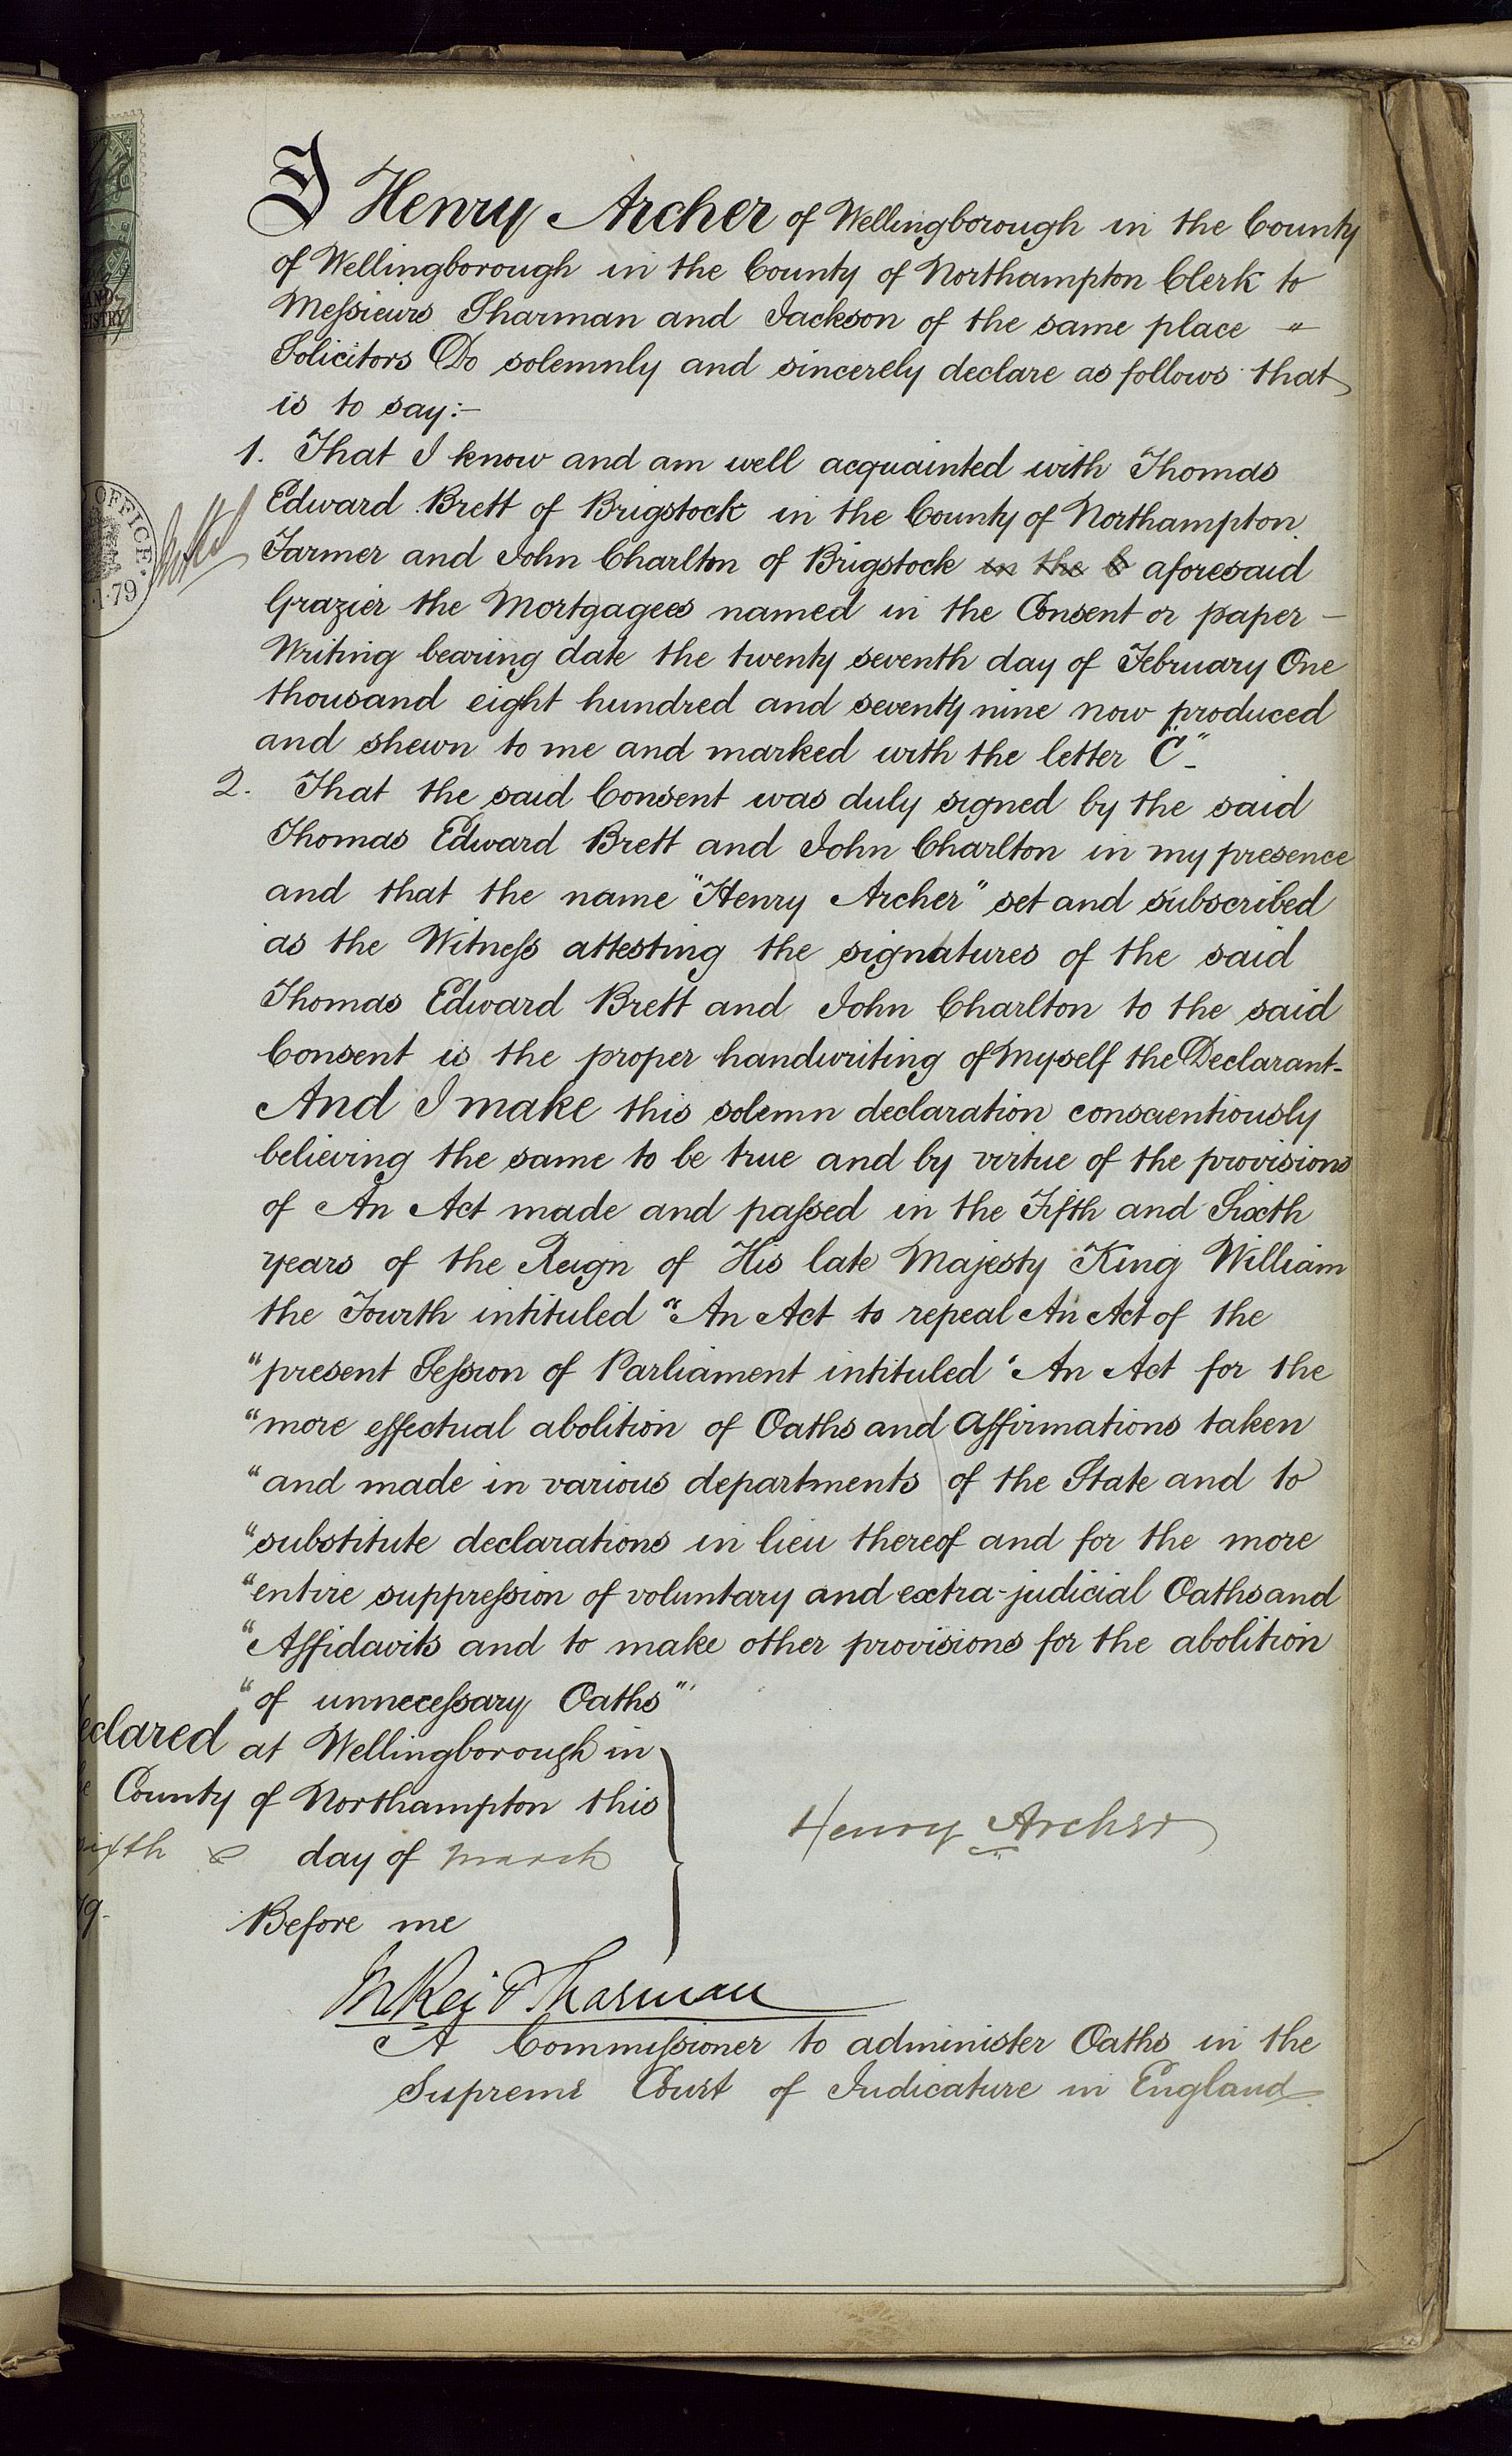 I Henry Archer of Wellingborough in the County
of Wellingborough in the County of Northampton Clerk to
Meſsieurs Sharman and Jackson of the same place "
Solicitors Do solemnly and sincerely declare as follows that
is to say:-
1. That I know and am well acquainted with Thomas
Edward Brett of Brigstock in the County of Northampton
OFFICE.
Farmer and John Charlton of Brigstock in the C aforesaid
.1.79
Grazier the Mortgagees named in the Consent or paper -
Writing bearing date the twenty seventh day of February One
thousand eight hundred and seventy nine now produced
and shewn to me and marked with the letter "C" -
2. That the said Consent was duly signed by the said
Thomas Edward Brett and John Charlton in my presence
and that the name "Henry Archer" set and subscribed
as the Witneſs attesting the signatures of the said
Thomas Edward Brett and John Charlton to the said
Consent is the proper handwriting of Myself the Declarant-
And I make this solemn declaration conscientiously
believing the same to be true and by virtue of the provisions
of An Act made and paſsed in the Fifth and Sixth
years of the Reign of His late Majesty King William
the Fourth intituled "An Act to repeal An Act of the
"present Seſsion of Parliament intituled 'An Act for the
"more effectual abolition of Oaths and Affirmations taken
"and made in various departments of the State and to
"substitute declarations in lieu thereof and for the more
"entire suppreſsion of voluntary and extra-judicial Oaths and
"Affidavits and to make other provisions for the abolition
"of unneceſsary Oaths"'
eclared at Wellingborough in
County of Northampton this
ixth day of March
79.
Before me
Henry Archer
Sharman
A Commiſsioner to administer Oaths in the
Supreme Court of Judicature in England